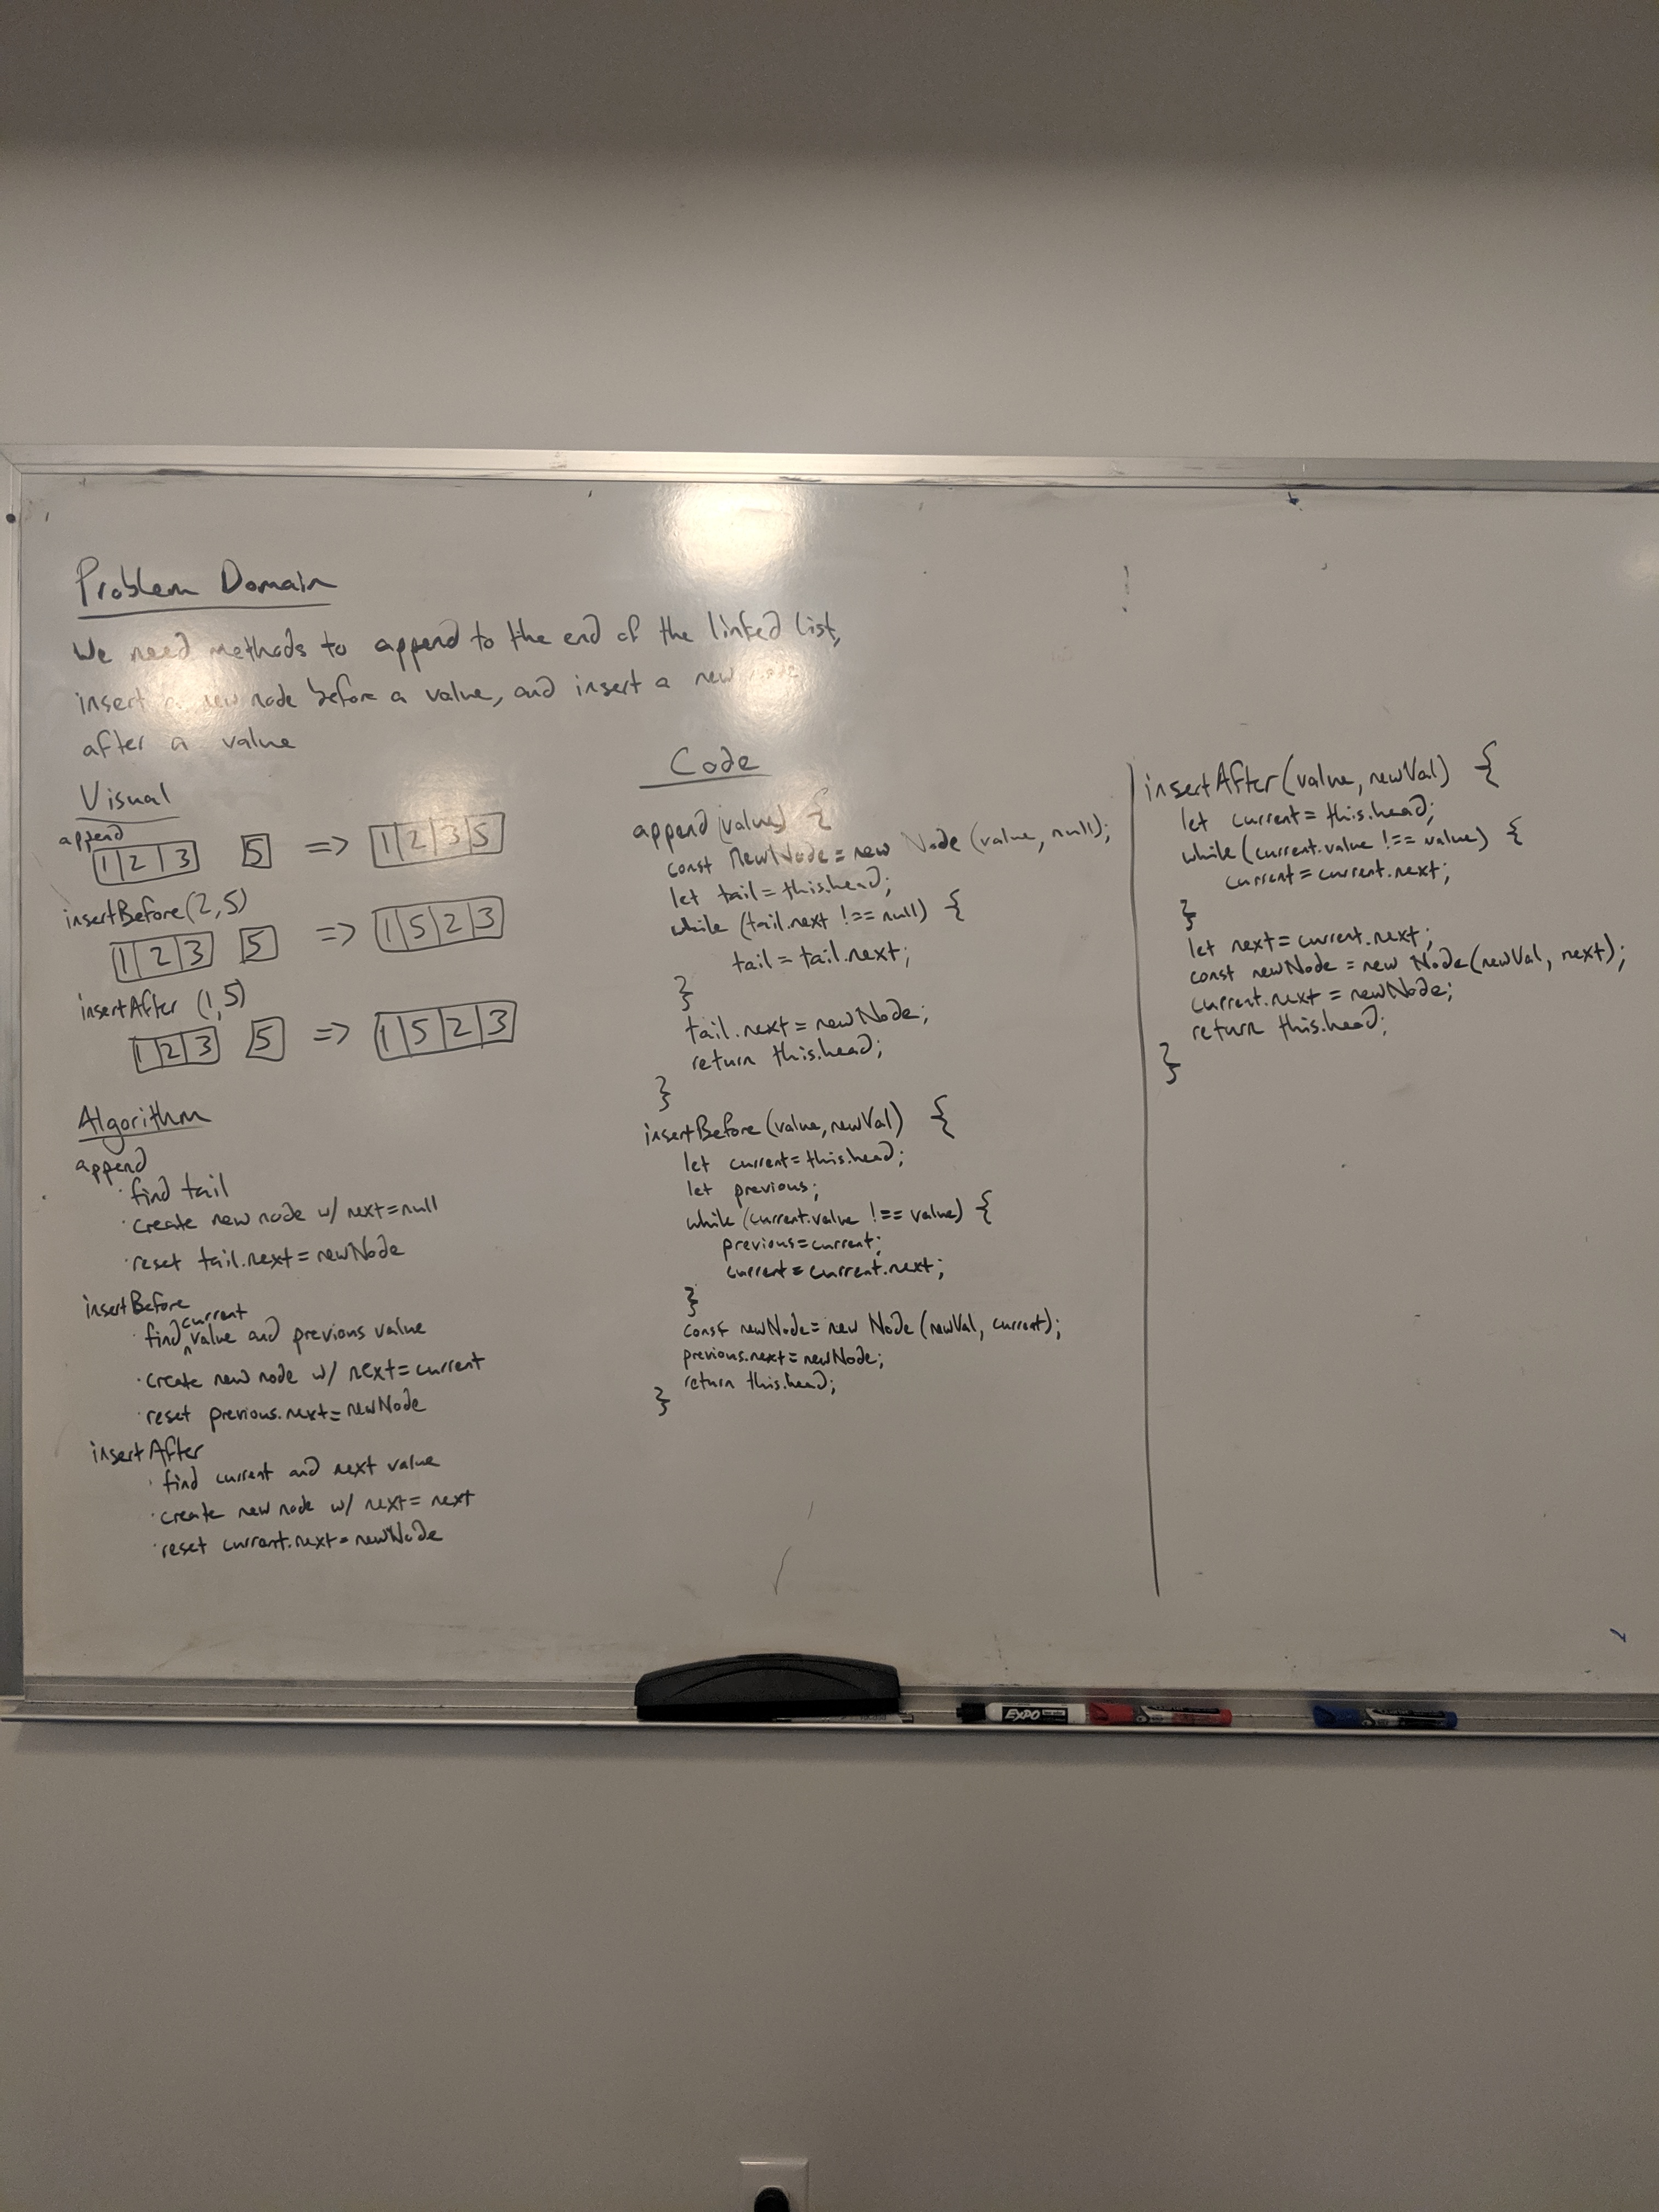 Problem Domain
We need methods to append to the end of the linked list,
insert a new node before a value, and insert a new node
after a value
Visual
append
1 2 3 5 => 1 2 3 5
insertBefore(2,5)
1 2 3 5 => 1 5 2 3
insertAfter (1,5)
1 2 3 5 => 1 5 2 3
Algorithm
append
· find tail
· create new node w/ next=null
· reset tail.next=newNode
insertBefore
· find current value and previous value
· create new node w/ next=current
· reset previous.next=newNode
insertAfter
· find current and next value
· create new node w/ next=next
· reset current.next=newNode
Code
append (value) {
const newNode = new Node (value, null);
let tail = this.head;
while (tail.next !== null) {
tail = tail.next;
}
tail.next = newNode;
return this.head;
}
insertBefore (value, newVal) {
let current = this.head;
let previous;
while (current.value !== value) {
previous = current;
current = current.next;
}
const newNode = new Node (newVal, current);
previous.next = newNode;
return this.head;
}
insertAfter (value, newVal) {
let current = this.head;
while (current.value !== value) {
current = current.next;
}
let next = current.next;
const newNode = new Node(newVal, next);
current.next = newNode;
return this.head;
}
EXPO